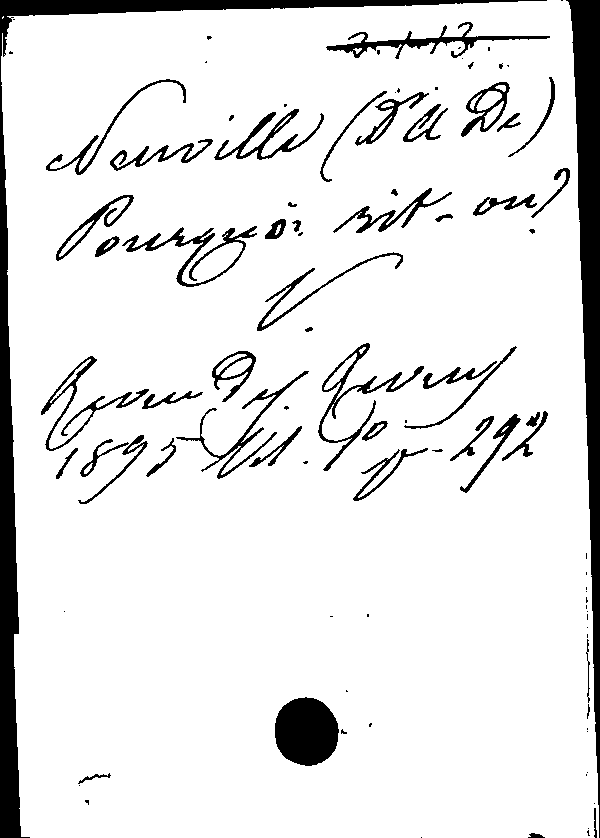 2.1.13.
Neuville (Dr A De)
Pourquoi rit-on?
V.
Revue Des Revues
1895 Vol. 1o p. 292